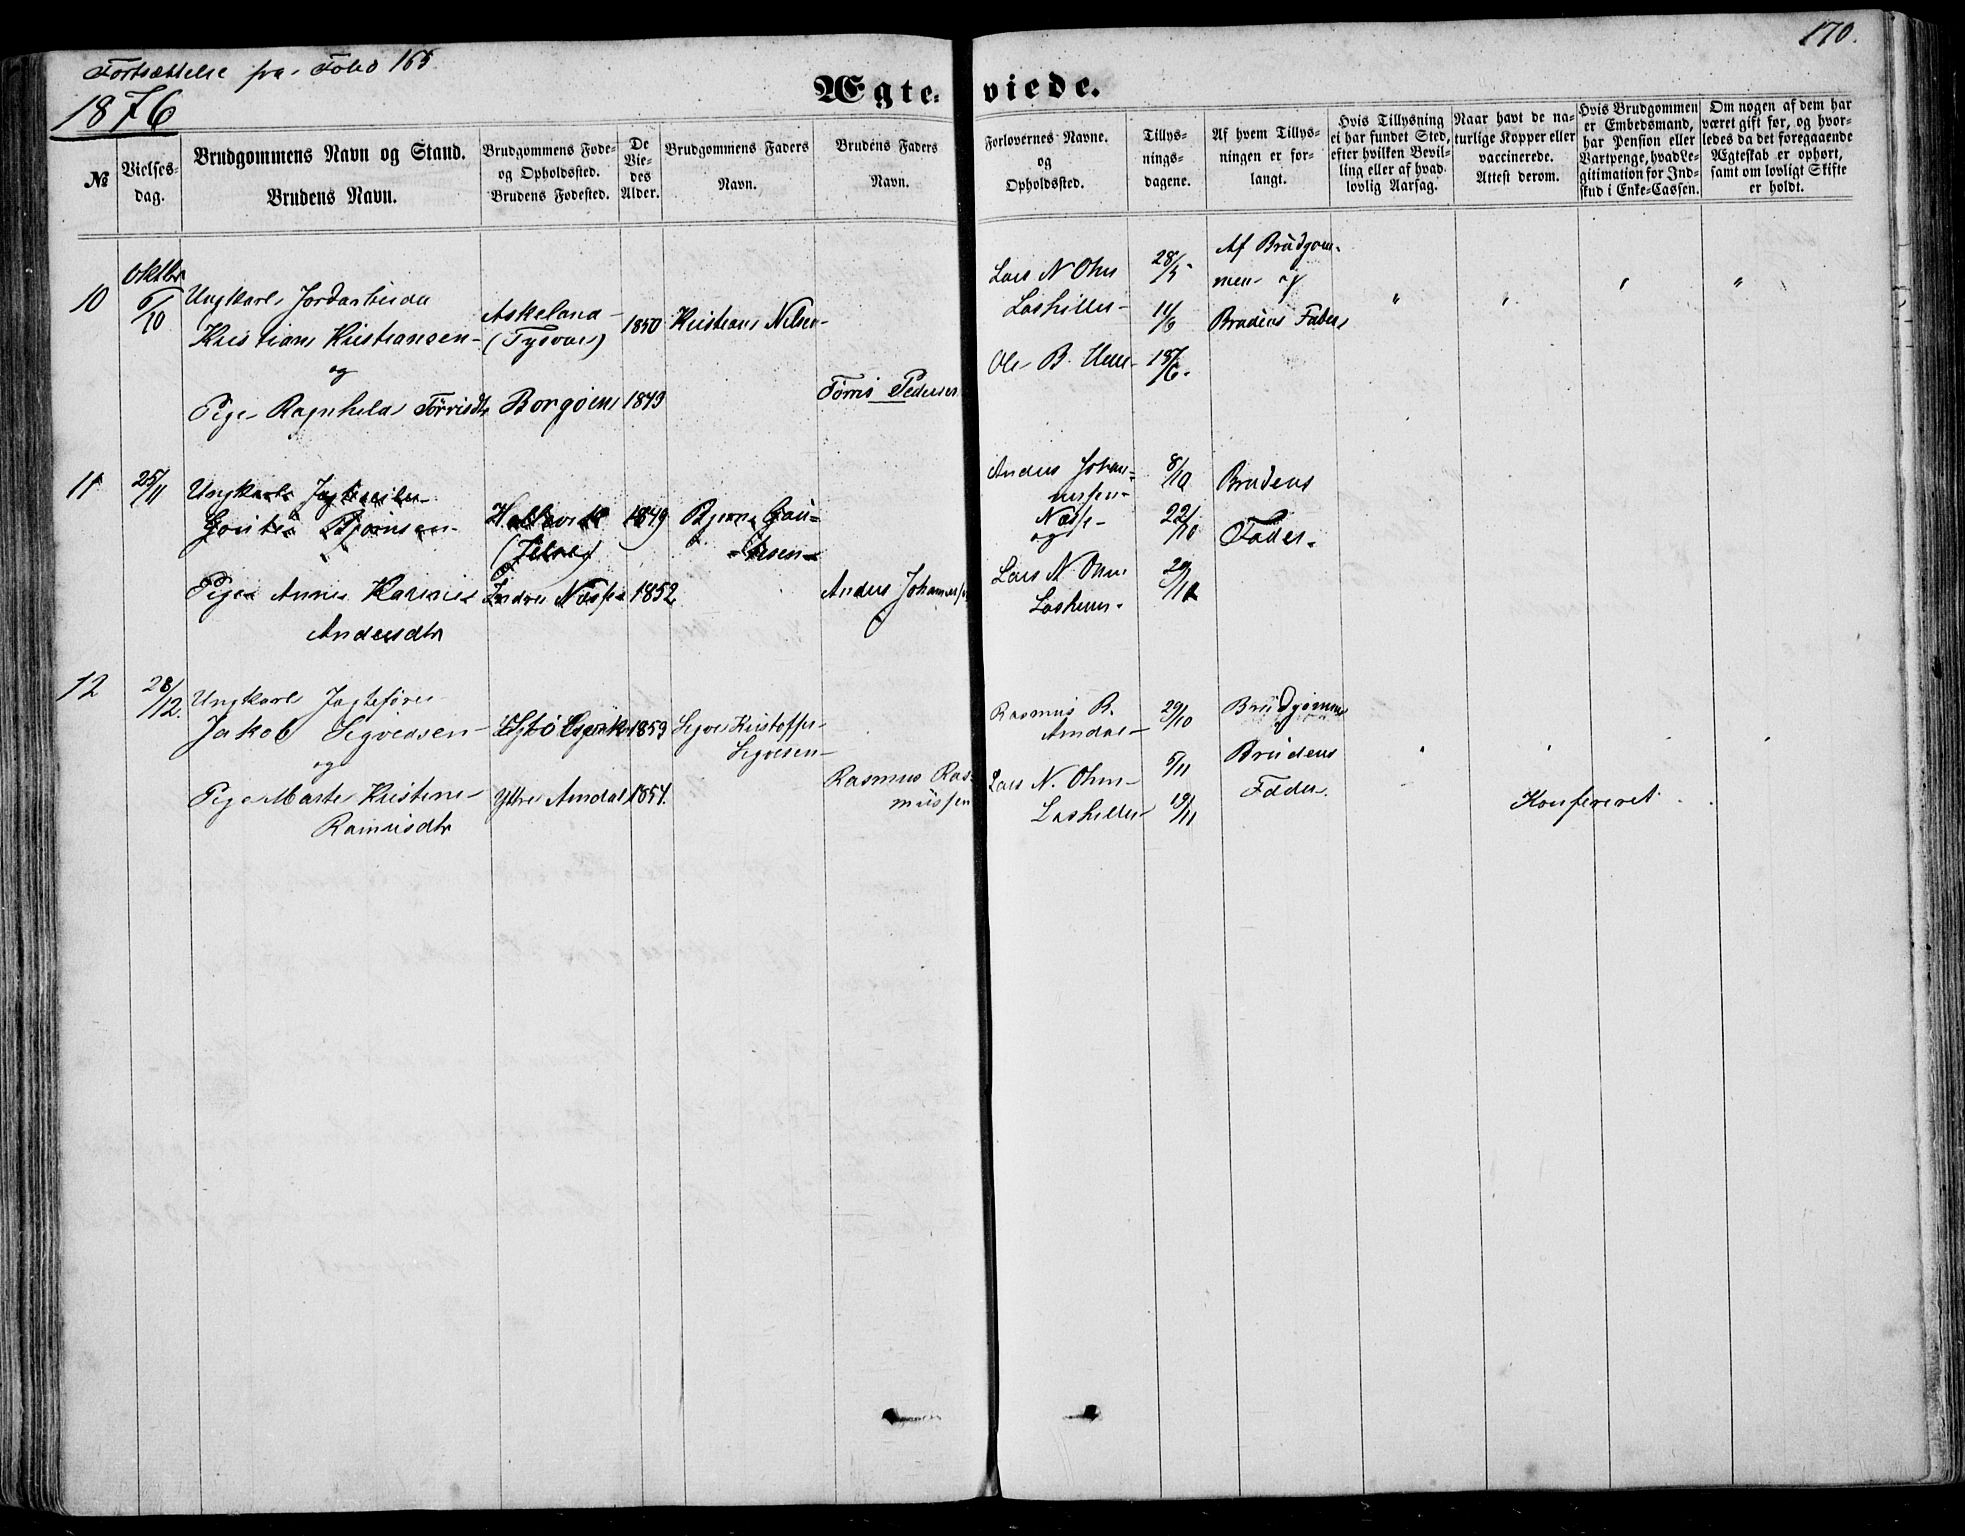 Fortsættelse fra Folio 165
170.
1876
Ægteviede.
№
Vielsesdag.
Brudgommens Navn og Stand.
Brudens Navn.
Brudgommens Føde-
og Opholdssted.
Brudens Fødested.
De
Vie-
des
Alder.
Brudgommens Faders
Navn.
Brudens Faders
Navn.
Forlovernes Navne.
og
Opholdssted.
Tillys-
nings-
dagene.
Af hvem Tillys-
ningen er for-
langt.
Hvis Tillysning
ei har fundet Sted,
efter hvilken Bevil-
ling eller af hvad
lovlig Aarsag.
Naar havt de na-
turlige Kopper eller
vaccinerede.
Attest derom.
Hvis Brudgommen
er Embedsmand,
har Pension eller
Vartpenge, hvad Le-
gitimation for Ind-
skud i Enke-Cassen.
Om nogen af dem har
været gift før, og hvor-
ledes da det foregaaende
Ægteskab er ophørt,
samt om lovligt Skifte
er holdt.
10
Oktbr
6/10
Ungkarl
Kristian Kristiansen
og
Pige Ragnhild Tørrisdtr
Askeland
(Tysvær)
Borgøen
1850
1843
Kristian Nilsen
Tørris Pedersen
Lars N Ohm
Ole B.
28/5
11/6
18/6
Af Brudgom-
men og
Brudens Fader
11
25/11
Ungkarl
Bjørnsen
Pige Anne Karine
Andersdtr
(Jelse)
Indre Næsse
1849
1852
Bjørn Gau-
tesen
Anders Johannessen
Anders Johan-
nessen
Næsse
og
Lars N. Ohm
8/10
22/10
29/10
Brudens
Fader
12
28/12.
Ungkarl Jagtefører
Jakob Sigvedsen
og
Pige Marte Kristine
Rasmusdtr
Ytre Amdal
1853
1854.
Kristoffer
Rasmus Ras-
mussen
Rasmus R.
Amdal
Lars N. Ohm
29/10
5/11
19/11
Brudgommen
Brudens
Fader.
Konfereret.